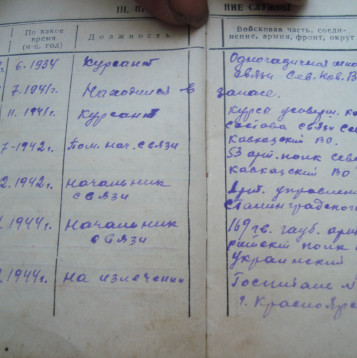 III. ПР
НИЕ СЛУЖБЫ
По какое
время
(м-ц, год)
Должность
Войсковая часть, соеди-
нение, армия, фронт, округ
6.1934 Курсант Одногодичная
связи Сев. Кав. В
7.1941г. Находился в запасе.
11.1941г. Курсант Курсы усоверш.
состава связи Се
Кавказский ВО.
7-1942г. Пом. нач. связи 53 арт. полк Сев
Кавказский ВО
2.1942г. начальник
связи
Арт. управлен
Сталинградского
1944г. начальник
связи
169 гв. гауб. арт
рийский полк
Украинский
1944г. на излечении Госпиталь №
г. Краснояр